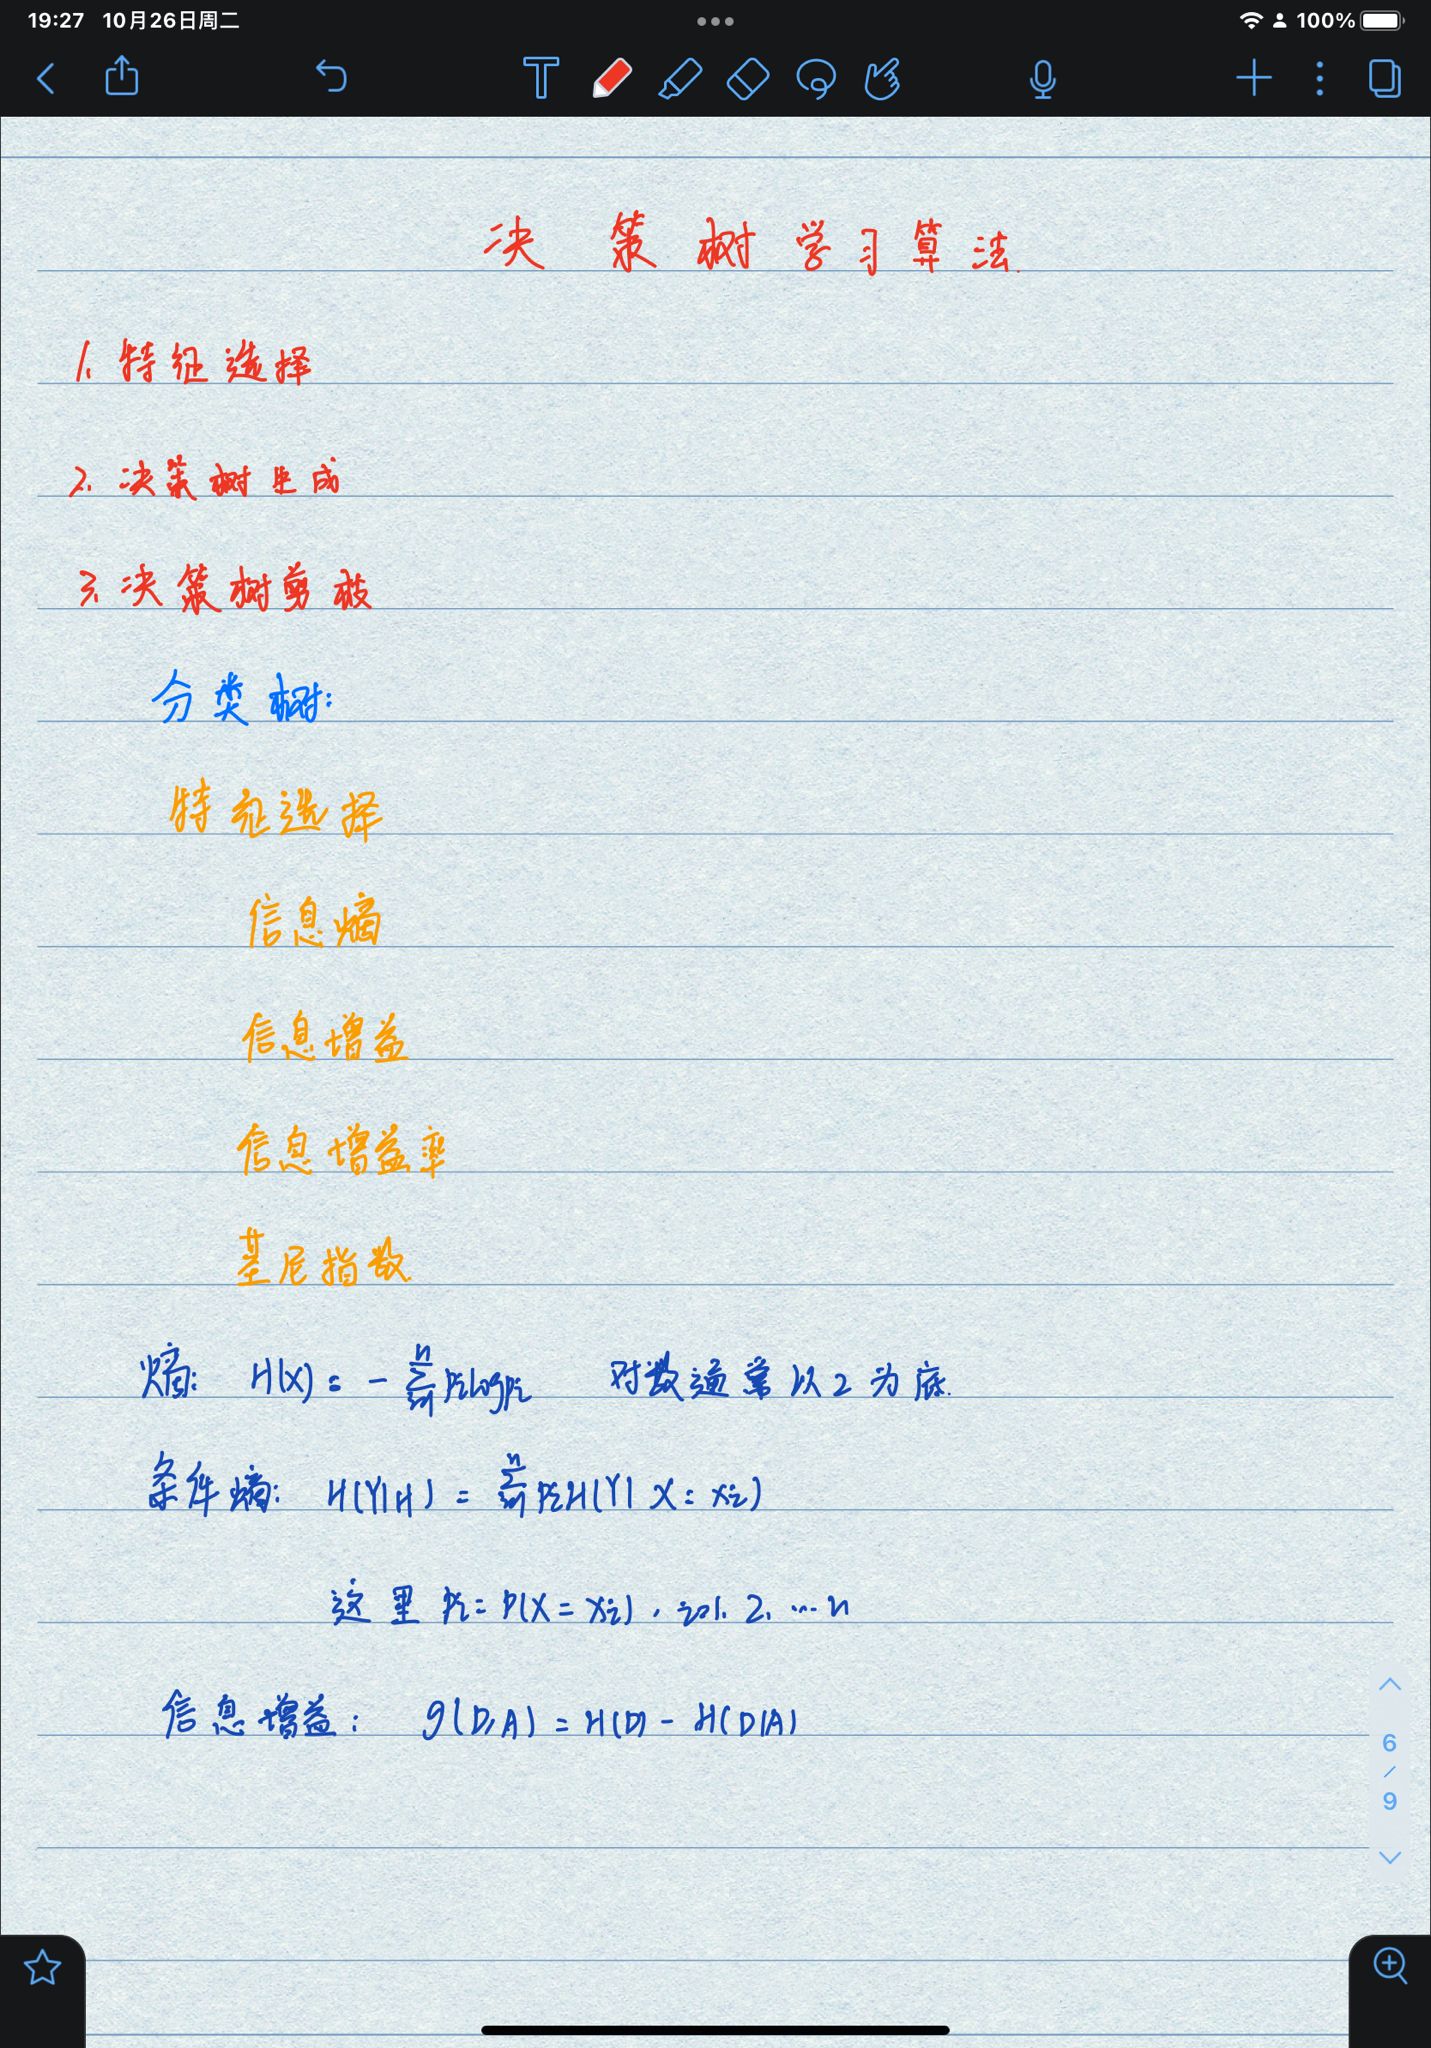 19:27 10月26日周二 100%
T
决策树学习算法.
1. 特征选择
2. 决策树生成
3. 决策树剪枝
分类树:
特征选择
信息熵
信息增益
信息增益率
基尼指数
熵: H(X) = - ∑ⁿᵢ₌₁ pᵢ log pᵢ 对数通常以2为底.
条件熵: H(Y|H) = ∑ⁿᵢ₌₁ pᵢ H(Y| X = xᵢ)
这里 pᵢ = P(X = xᵢ), i=1. 2. ... n
信息增益: g(D,A) = H(D) - H(D|A)
6
/
9